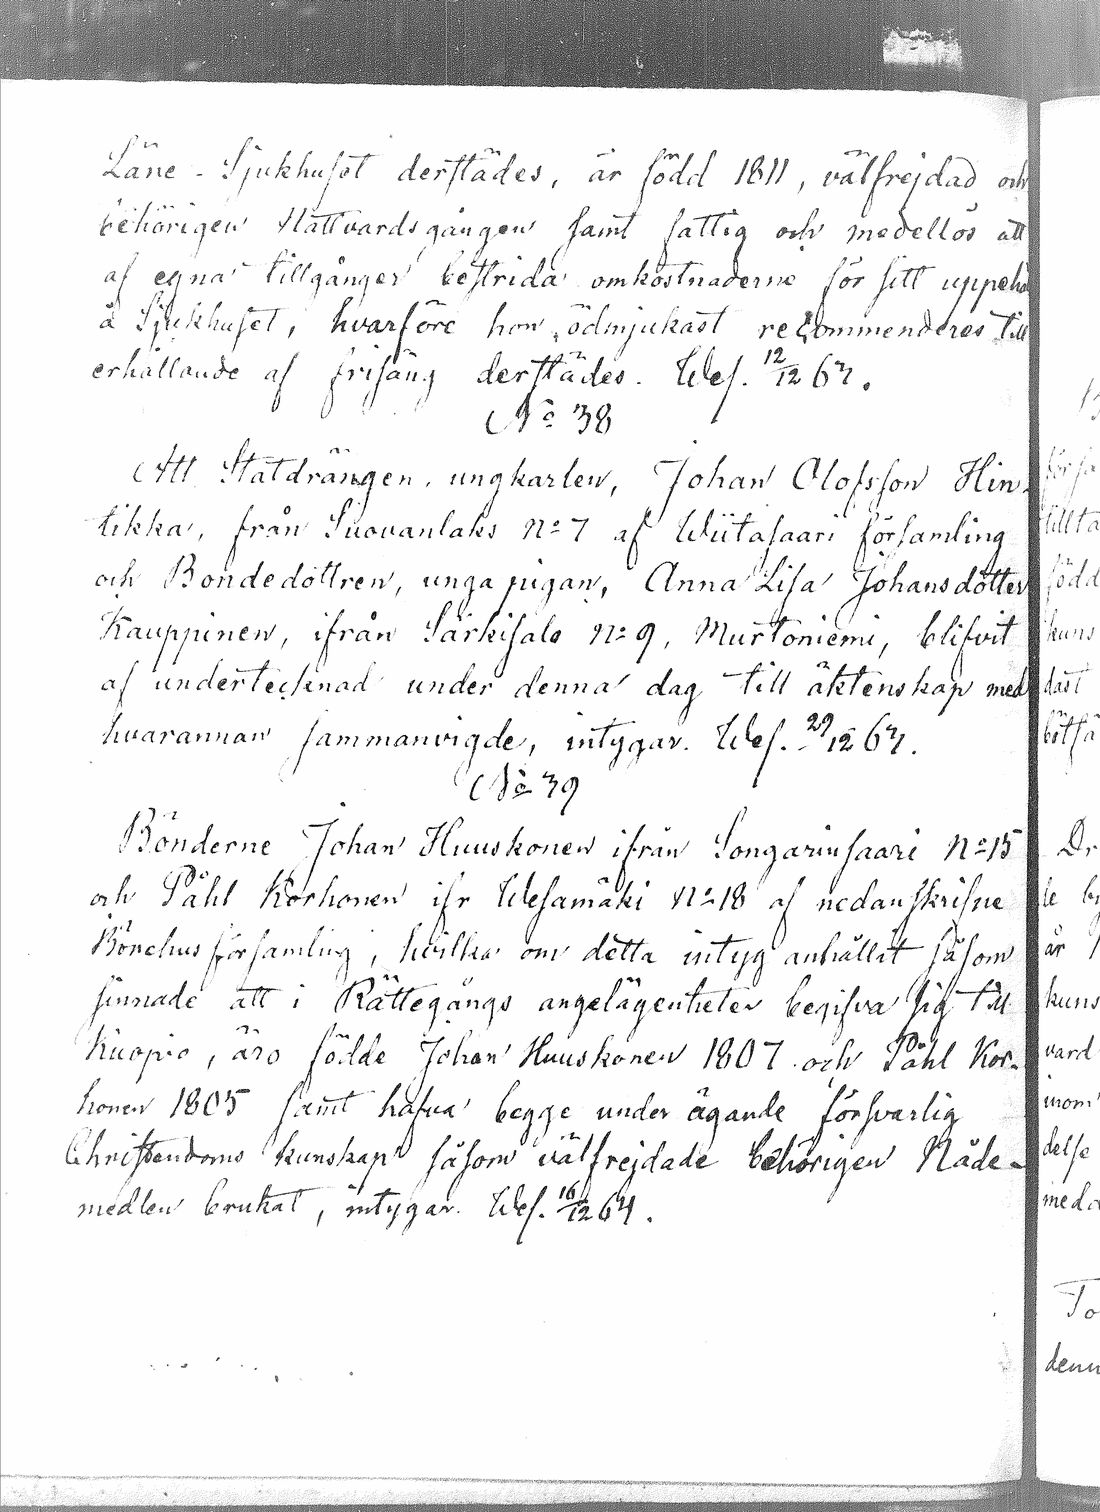 Läne-Sjukhuset derstädes, är född 1811, välfrejdad och
behörigen Nattvardsgången samt fattig och medellös att
af egna tillgånger bestrida omkostnaderne för sitt uppehå
å Sjukhuset, hvarföre hon ödmjukast recommenderes till
erhållande af frisäng derstädes. Wes. 12/12 64.
No 38
Att Statdrängen, ungkarlen, Johan Olofsson Hin-
tikka, från Suovanlaks No 7 af Wiitasaari församling
och Bondedottren, unga pigan, Anna Lisa Johansdotter
Kauppinen, ifrån Särkisalo No 9, Murtoniemi, blifvit
af undertecknad under denna dag till äktenskap med
hvarannan sammanvigde, intygar. Wes. 29/12 64.
No 39
Bönderne Johan Huuskonen ifrån Songarinsaari No 15
och Påhl Korhonen ifr Wesamäki No 18 af nedanskrifne
Bönehusförsamling, hvilka om detta intyg anhållit såsom
sinnade att i Rättegångs angelägenheter begifva sig till
Kuopio, äro födde Johan Huuskonen 1807 och Påhl Kor-
honen 1805 samt hafva begge under ägande försvarlig
Christendoms kunskap såsom välfrejdade behörigen Nåde-
medlen brukat, intygar. Wes. 16/12 64.
född
kuns
dast
Dr
är
kuns
vard
inom
delse
To
denn